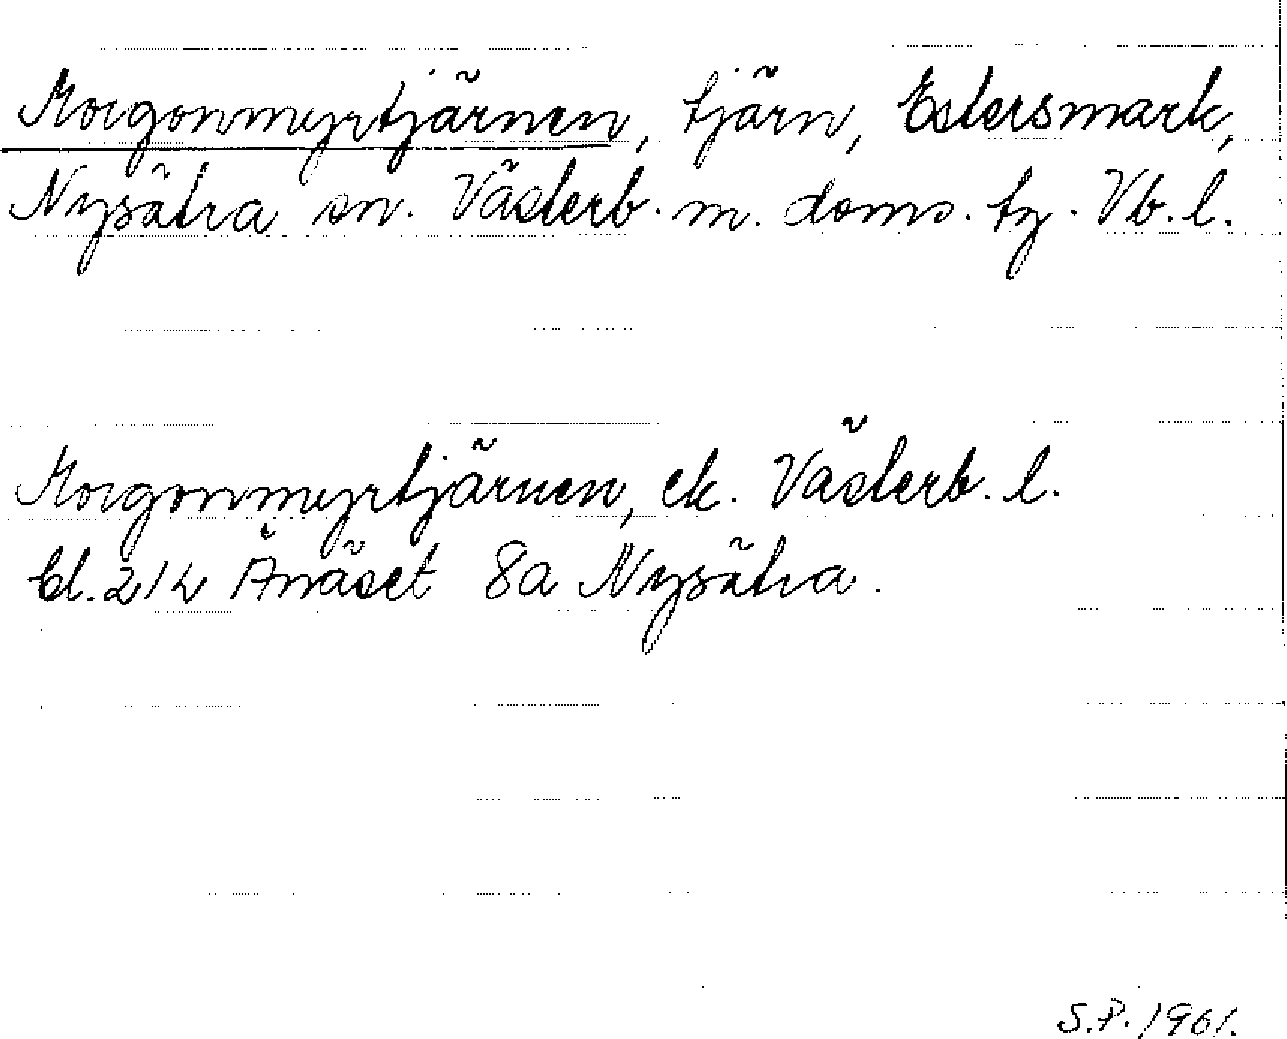 Morgonmyrtjärnen, tjärn, Estersmark,
Nysätra sn. Västerb. m. doms. tg. Vb. l.
Morgonmyrtjärnen, ek. Västerb. l.
bl. 212 Ånäset 8a Nysätra.
S.P. 1961.